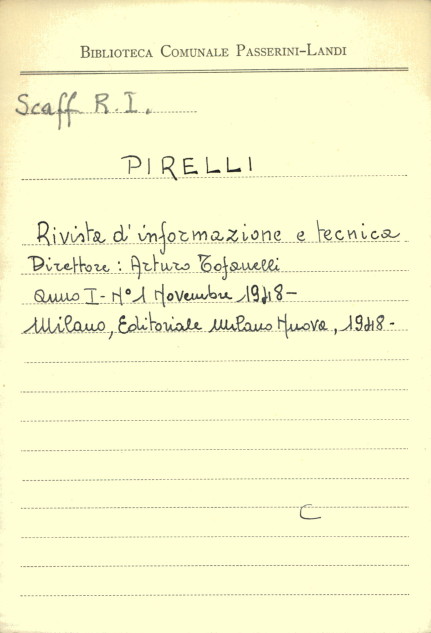 BIBLIOTECA COMUNALE PASSERINI-LANDI
Scaff R.I.
PIRELLI
Rivista d'informazione e tecnica
Direttore: Arturo Tofanelli
Anno I - N° 1 Novembre 1948 -
Milano, Editoriale Milano Nuova, 1948 -
C